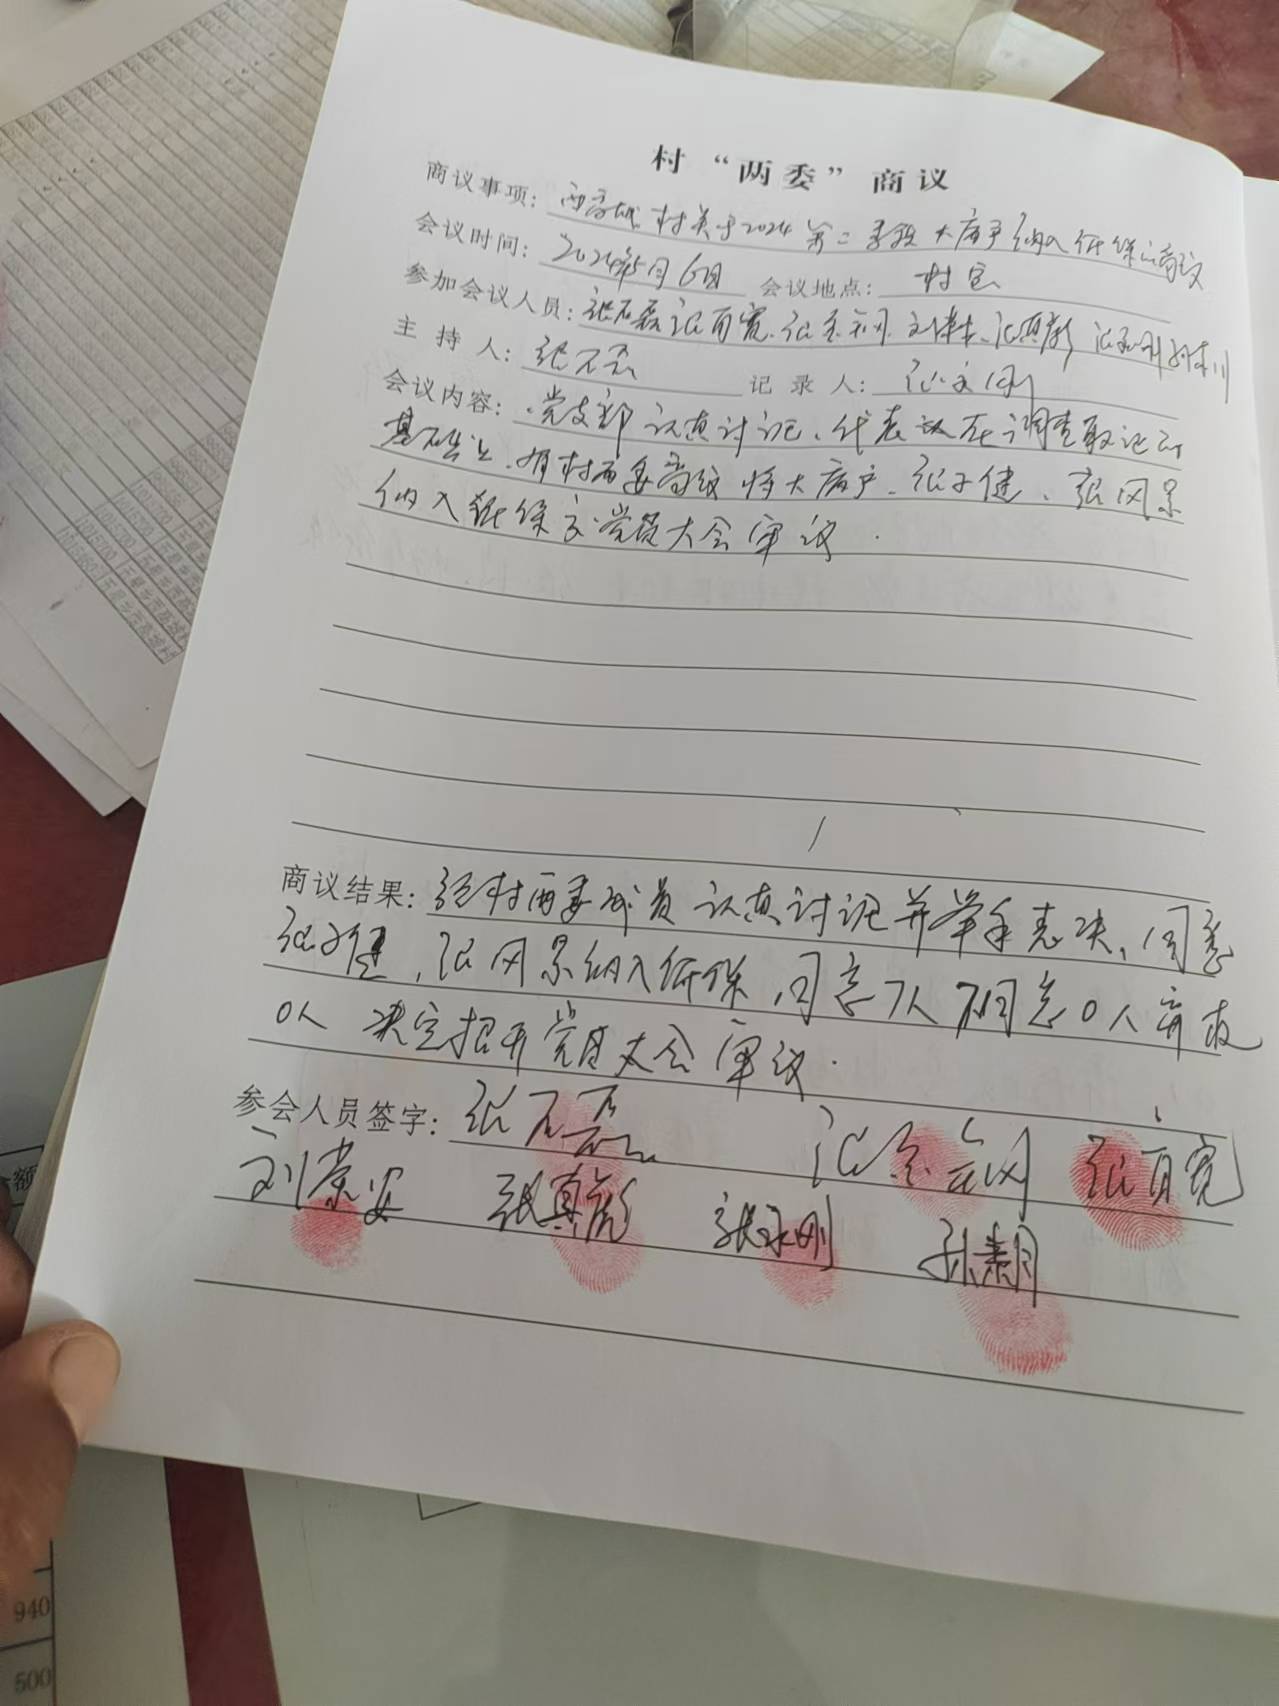 村“两委”商议
商议事项：西高城村关于2024第二季度大病户纳入低保的商议
会议时间：2024年5月6日 会议地点：村室
参加会议人员：张石磊 张百宽 张金 刘 张真彪 张永刚
主持人：张石磊 记录人：张永刚
会议内容：党支部认真讨论、代表 在调查取证的
基础上、有村两委商议将大病户、张子健、张风景
纳入低保交党员大会审议.
商议结果：经村两委成员认真讨论并举手表决、同意
张子健，张风景纳入低保，同意7人 不同意0人 弃权
0人 决定招开党员大会审议.
参会人员签字：张石磊 张金 张百宽
刘荣安 张真彪 张永刚 孙素月
940
500